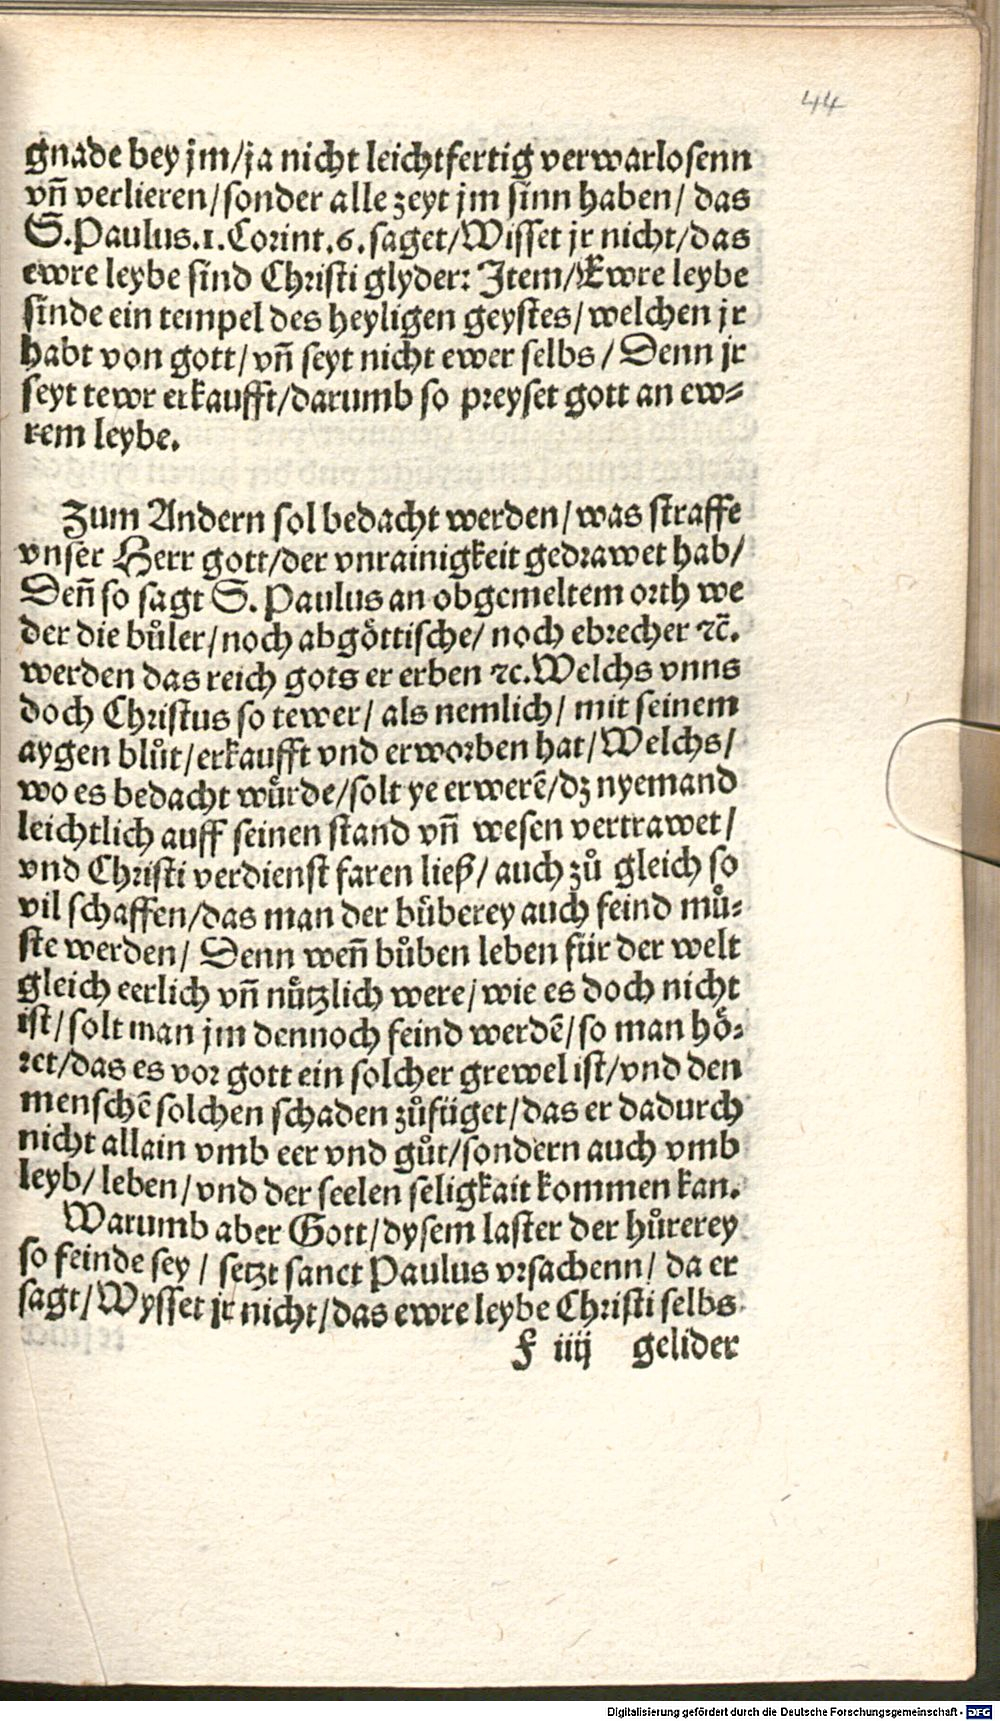 44
gnade bey jm/ja nicht leichtfertig verwarlosenn
vñ verlieren/sonder alle zeyt jm sinn haben/ das
S.Paulus.1.Corint.6.saget/Wisset jr nicht/das
ewre leybe sind Christi glyder: Item/Ewre leybe
sinde ein tempel des heyligen geystes/welchen jr
habt von gott/vñ seyt nicht ewer selbs/ Denn jr
seyt tewr erkaufft/darumb so preyset gott an ew⸗
rem leybe.
Zum Andern sol bedacht werden/was straffe
vnser Herr gott/der vnrainigkeit gedrawet hab/
Deñ so sagt S. Paulus an obgemeltem orth we
der die bůler/noch abgöttische/ noch ebrecher ꝛc̃.
werden das reich gots er erben ꝛc.Welchs vnns
doch Christus so tewer/ als nemlich/ mit seinem
aygen blůt/erkaufft vnd erworben hat/Welchs/
wo es bedacht wůrde/solt ye erwerẽ/dz nyemand
leichtlich auff seinen stand vñ wesen vertrawet/
vnd Christi verdienst faren ließ/ auch zů gleich so
vil schaffen/das man der bůberey auch feind můs⸗
ste werden/ Denn weñ bůben leben für der welt
gleich eerlich vñ nůtzlich were/wie es doch nicht
ist/solt man jm dennoch feind werdẽ/so man hö⸗
ret/das es vor gott ein solcher grewel ist/vnd den
menschẽ solchen schaden zůfüget/das er dadurch
nicht allain vmb eer vnd gůt/sondern auch vmb
leyb/ leben/vnd der seelen seligkait kommen kan.
Warumb aber Gott/dysem laster der hůrerey
so feinde sey/ setzt sanct Paulus vrsachenn/ da er
sagt/Wysset jr nicht/das ewre leybe Christi selbs
F iiij gelider
Digitalisierung gefördert durch die Deutsche Forschungsgemeinschaft - DFG